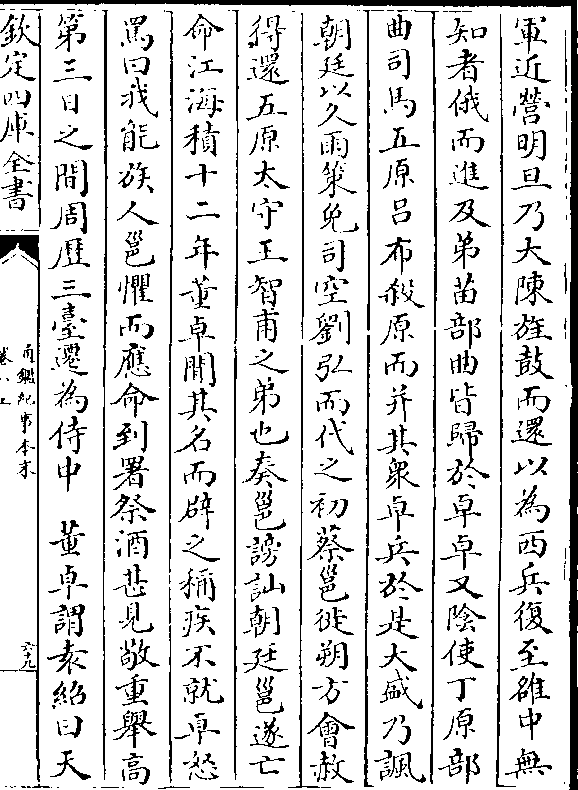 軍近營明旦乃大陳旌鼓而還以為西兵復至雒中無
知者俄而進及弟苗部曲皆歸於卓卓又陰使丁原部
曲司馬五原吕布殺原而并其衆卓兵於是大盛乃諷
朝廷以久雨策免司空劉弘而代之初蔡邕徙朔方會赦
得還五原太守王智甫之弟也奏邕謗訕朝廷邕遂亡
命江海積十二年董卓聞其名而辟之稱疾不就卓怒
罵曰我能族人邕懼而應命到署祭酒甚見敬重舉高
第三日之間周歴三臺遷為侍中　董卓謂袁紹曰天
欽定四庫全書
通鑑紀事本末
卷八上
六十九